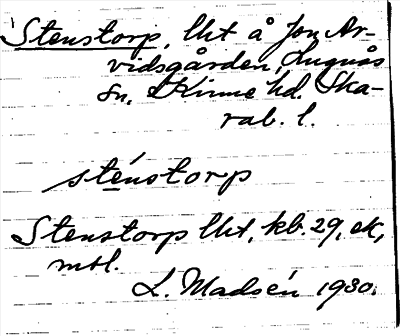 Stenstorp, lht å Jon Ar-
vidsgården, Hugnås
sn, Kinne hd. Ska-
rab. l.
sténstorp
Stenstorp lht, kb. 29, ek,
mtl.
L. Madsén 1930.